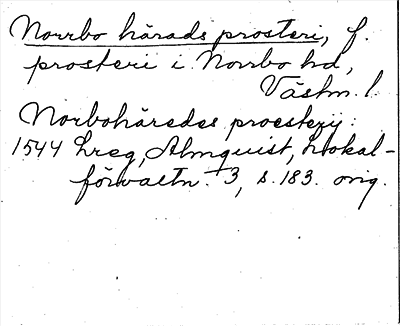 Norrbo härads prosteri, f.
prosteri i Norrbo hd,
Västm. l.
Norbohäredes proestery:
1544 Lreg, Almquist, Lokal-
förvaltn. 3, s. 183. orig.